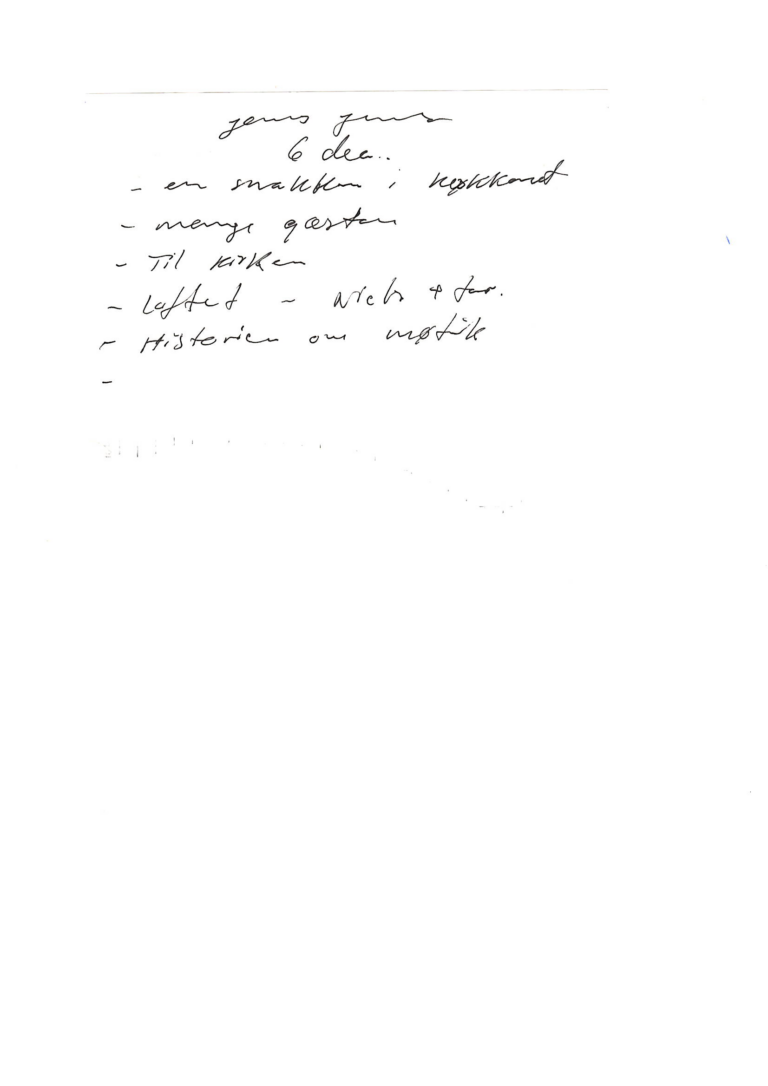 jens jens
6 dec..
- en snakken i køkkenet
- mange gæsten
- Til kirken
- Loftet - Niels + far.
- Historien om møtrik
-